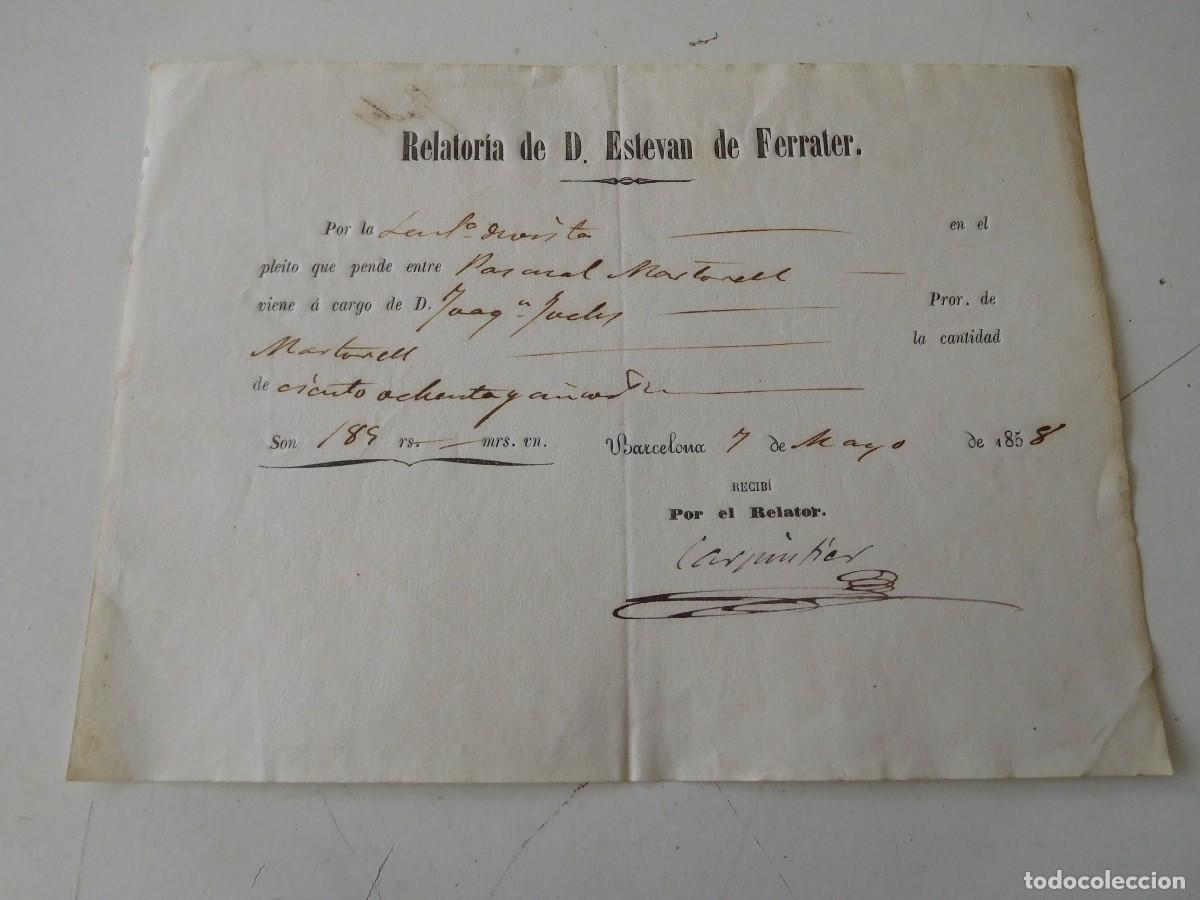 Relatoría de D. Estevan de Ferrater.
Por la Senta. de vista en el
pleito que pende entre Pascual Martorell
viene á cargo de D. Joaqn. Pror. de
Martorell la cantidad
de ciento ochenta y cinco rs.
Son 185 rs. mrs. vn. Barcelona 7 de Mayo de 1858
RECIBÍ
Por el Relator.
Carpintier
todocoleccion